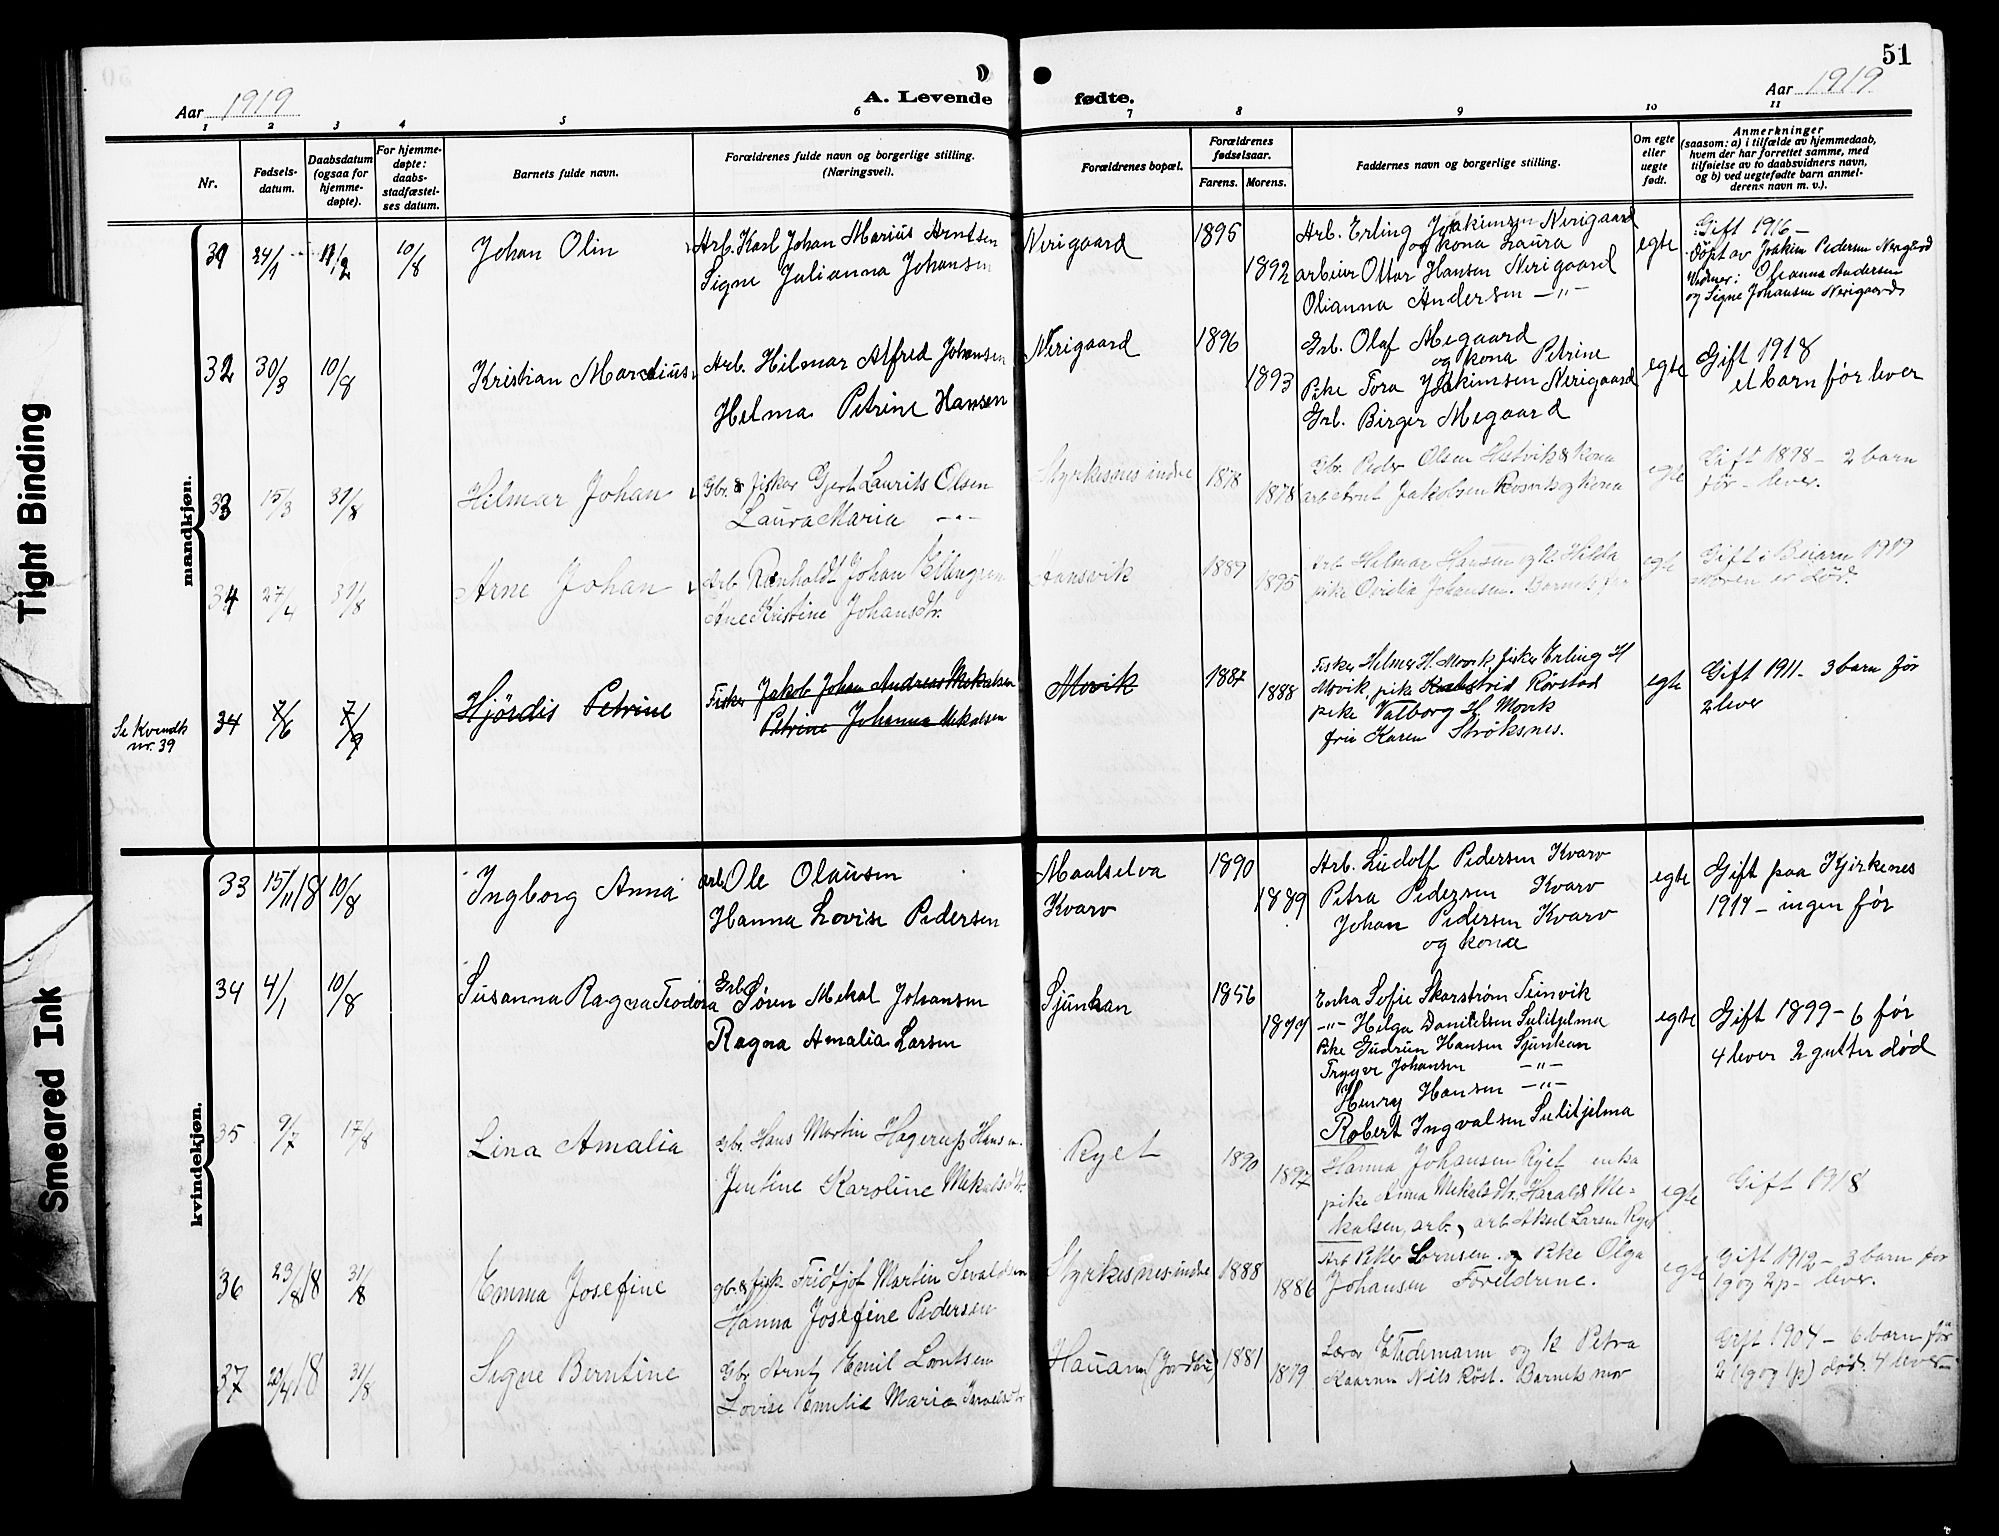 51
Aar 1919
A. Levende fødte.
Aar 1919
1 2 3 4 5 6 7 8 9 10 11
Nr.
Fødsels-
datum.
Daabsdatum
(ogsaa for
hjemme-
døpte).
For hjemme-
døpte:
daabs-
stadfæstel-
ses datum.
Barnets fulde navn.
Forældrenes fulde navn og borgerlige stilling.
(Næringsvei).
Forældrenes bopæl.
Forældrenes
fødselsaar.
Farens. Morens.
Faddernes navn og borgerlige stilling.
Om egte
eller
uegte
født.
Anmerkninger
(saasom: a) i tilfælde av hjemmedaab,
hvem der har forrettet samme, med
tilføielse av to daabsvidners navn,
og b) ved uegtefødte barn anmel-
derens navn m. v.).
mandkjøn.
31 24/1 10/8 Johan Olin
Arb. Karl Johan Marius Arntsen
Signe Julianna Johansen
Nerigaard 1895 1892
Arb. Erling Joakimsen Nerigaard
og kona Laura
arbeier Ottar Hansen Nerigaard
Olianna Andersen -"-
egte
Gift 1916 -
Døpt av Joakim Pedersen Nerigaard
Vidner: Olianna Andersen
og Signe Johansen Nerigaard
32 30/3 10/8 Kristian Mardius
Arb. Hilmar Alfred Johansen
Helma Petrine Hansen
Nerigaard 1896 1893
Grb. Olaf Megaard
og kona Petrine
Pike Tora Joakimsen Nerigaard
Grb. Birger Megaard
egte
Gift 1918
et barn før lever
33 15/3 31/8 Hilmar Johan
Gbr. & fisker Gjert Laurits Olsen
Laura Maria -"-
Styrkesnes indre 1878 1878
Gbr. Peder Olsen Hestvik & kona
arb. Arnt Jakobsen Rosvik og kona
egte
Gift 1898 - 2 barn
før - lever.
34 27/4 31/8 Arne Johan
Arb. Reinholdt Johan Ellingsen
Ane Kristine Johansdtr.
Hansvik 1889 1895
Arb. Helmar Hansen og K. Hilda
pike Ovidia Johansen. Barnets far
egte
Gift i Beiarn 1919
moren er død.
Se Kvindk
nr. 39
34 7/6 7/9 Hjørdis Petrine
Fisker Jakob Johan Andreas Mekalsen
Petrine Johanna Mekalsen
Movik 1887 1888
Fisker Helmer H. Movik, fisker Erling H
Movik, pike Rørstad
pike Valborg H Movik
frøi Karen Strøksnes.
egte
Gift 1911 - 3 barn før
2 lever
kvindekjøn.
33 15/11 18 10/8 Ingborg Anna
arb. Ole Olausen
Hanna Lovise Pedersen
Maalselva
Kvarv
1890 1889
Arb. Ludolf Pedersen Kvarv
Petra Pedersen Kvarv
Johan Pedersen Kvarv
og kone
egte
Gift paa Kjirkenes
1919 - ingen før
34 4/1 10/8 Susanna Ragna Teodora
Grb. Søren Mekal Johansen
Ragna Amalia Larsen
Sjunkan 1856
Enka Sofie Skarstrøm Finvik
-"- Helga Danielsen Sulitjelma
Pike Gudrun Hansen Sjunkan
Trygve Johansen -"-
Henry Hansen -"-
Robert Ingvalsen Sulitjelma
egte
Gift 1899 - 6 før
4 lever 2 gutter død
35 9/7 17/8 Lina Amalia
gbr. Hans Martin Hagerup Hansen.
Jentine Karoline Mekalsdtr.
Ryet 1890 1897
Hanna Johansen Ryet enka
pike Anna Mekalsdtr. Harald Me-
kalsen, arb., arb. Aksel Larsen Ryet
egte
Gift 1918
36 23/8 18 31/8 Emma Josefine
gbr. & fisk Fridtjof Martin Sevaldsen
Hanna Josefine Pedersen
Styrkesnes indre 1888 1886
Arb Petter Sørensen og Pike Olga
Johansen Foreldrene.
egte
Gift 1912 - 3 barn før
1 g og 2 p - lever.
37 20/4 18 31/8 Signe Berntine
Gbr Arnt Emil Lorntsen
Lovise Emilie Maria
Hauan (Jordbru) 1881 1879
Lærer Tidemann og K Petra
Kaarnes Nils Røst. Barnets mor
Gift 1904 - 6 barn før
2 (1g og 1p) død. 4 lever
Tight Binding
Smeared Ink